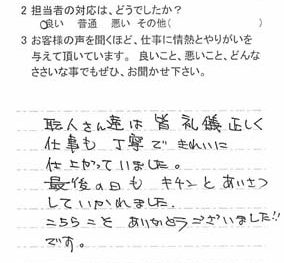 2 担当者の対応は、どうでしたか?
良い 普通 悪い その他( )
3 お客様の声を聞くほど、仕事に情熱とやりがいを
与えて頂いています。良いこと、悪いこと、どんな
ささいな事でもぜひ、お聞かせ下さい。
職人さん達は皆礼儀正しく
仕事も丁寧できれいに
仕上がっていました。
最後の日もキチンとあいさつ
していかれました。
こちらこそありがとうございました!!
です。